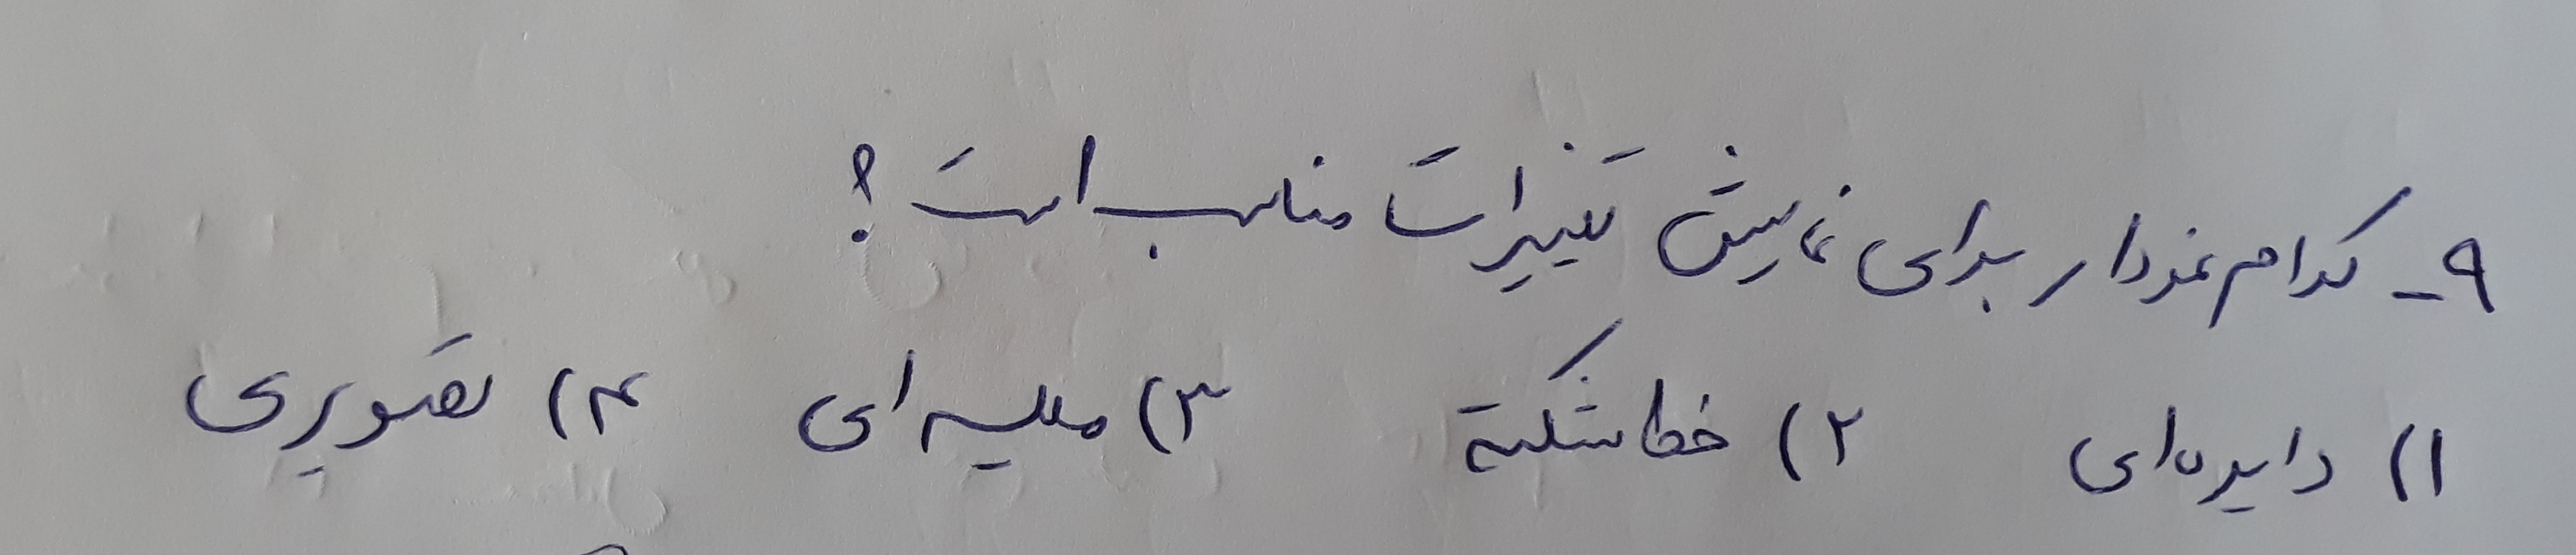 ۹- کدام نمودار برای نمایش تغییرات مناسب است؟
۱) دایره‌ای ۲) خط شکسته ۳) میله‌ای ۴) تصویری